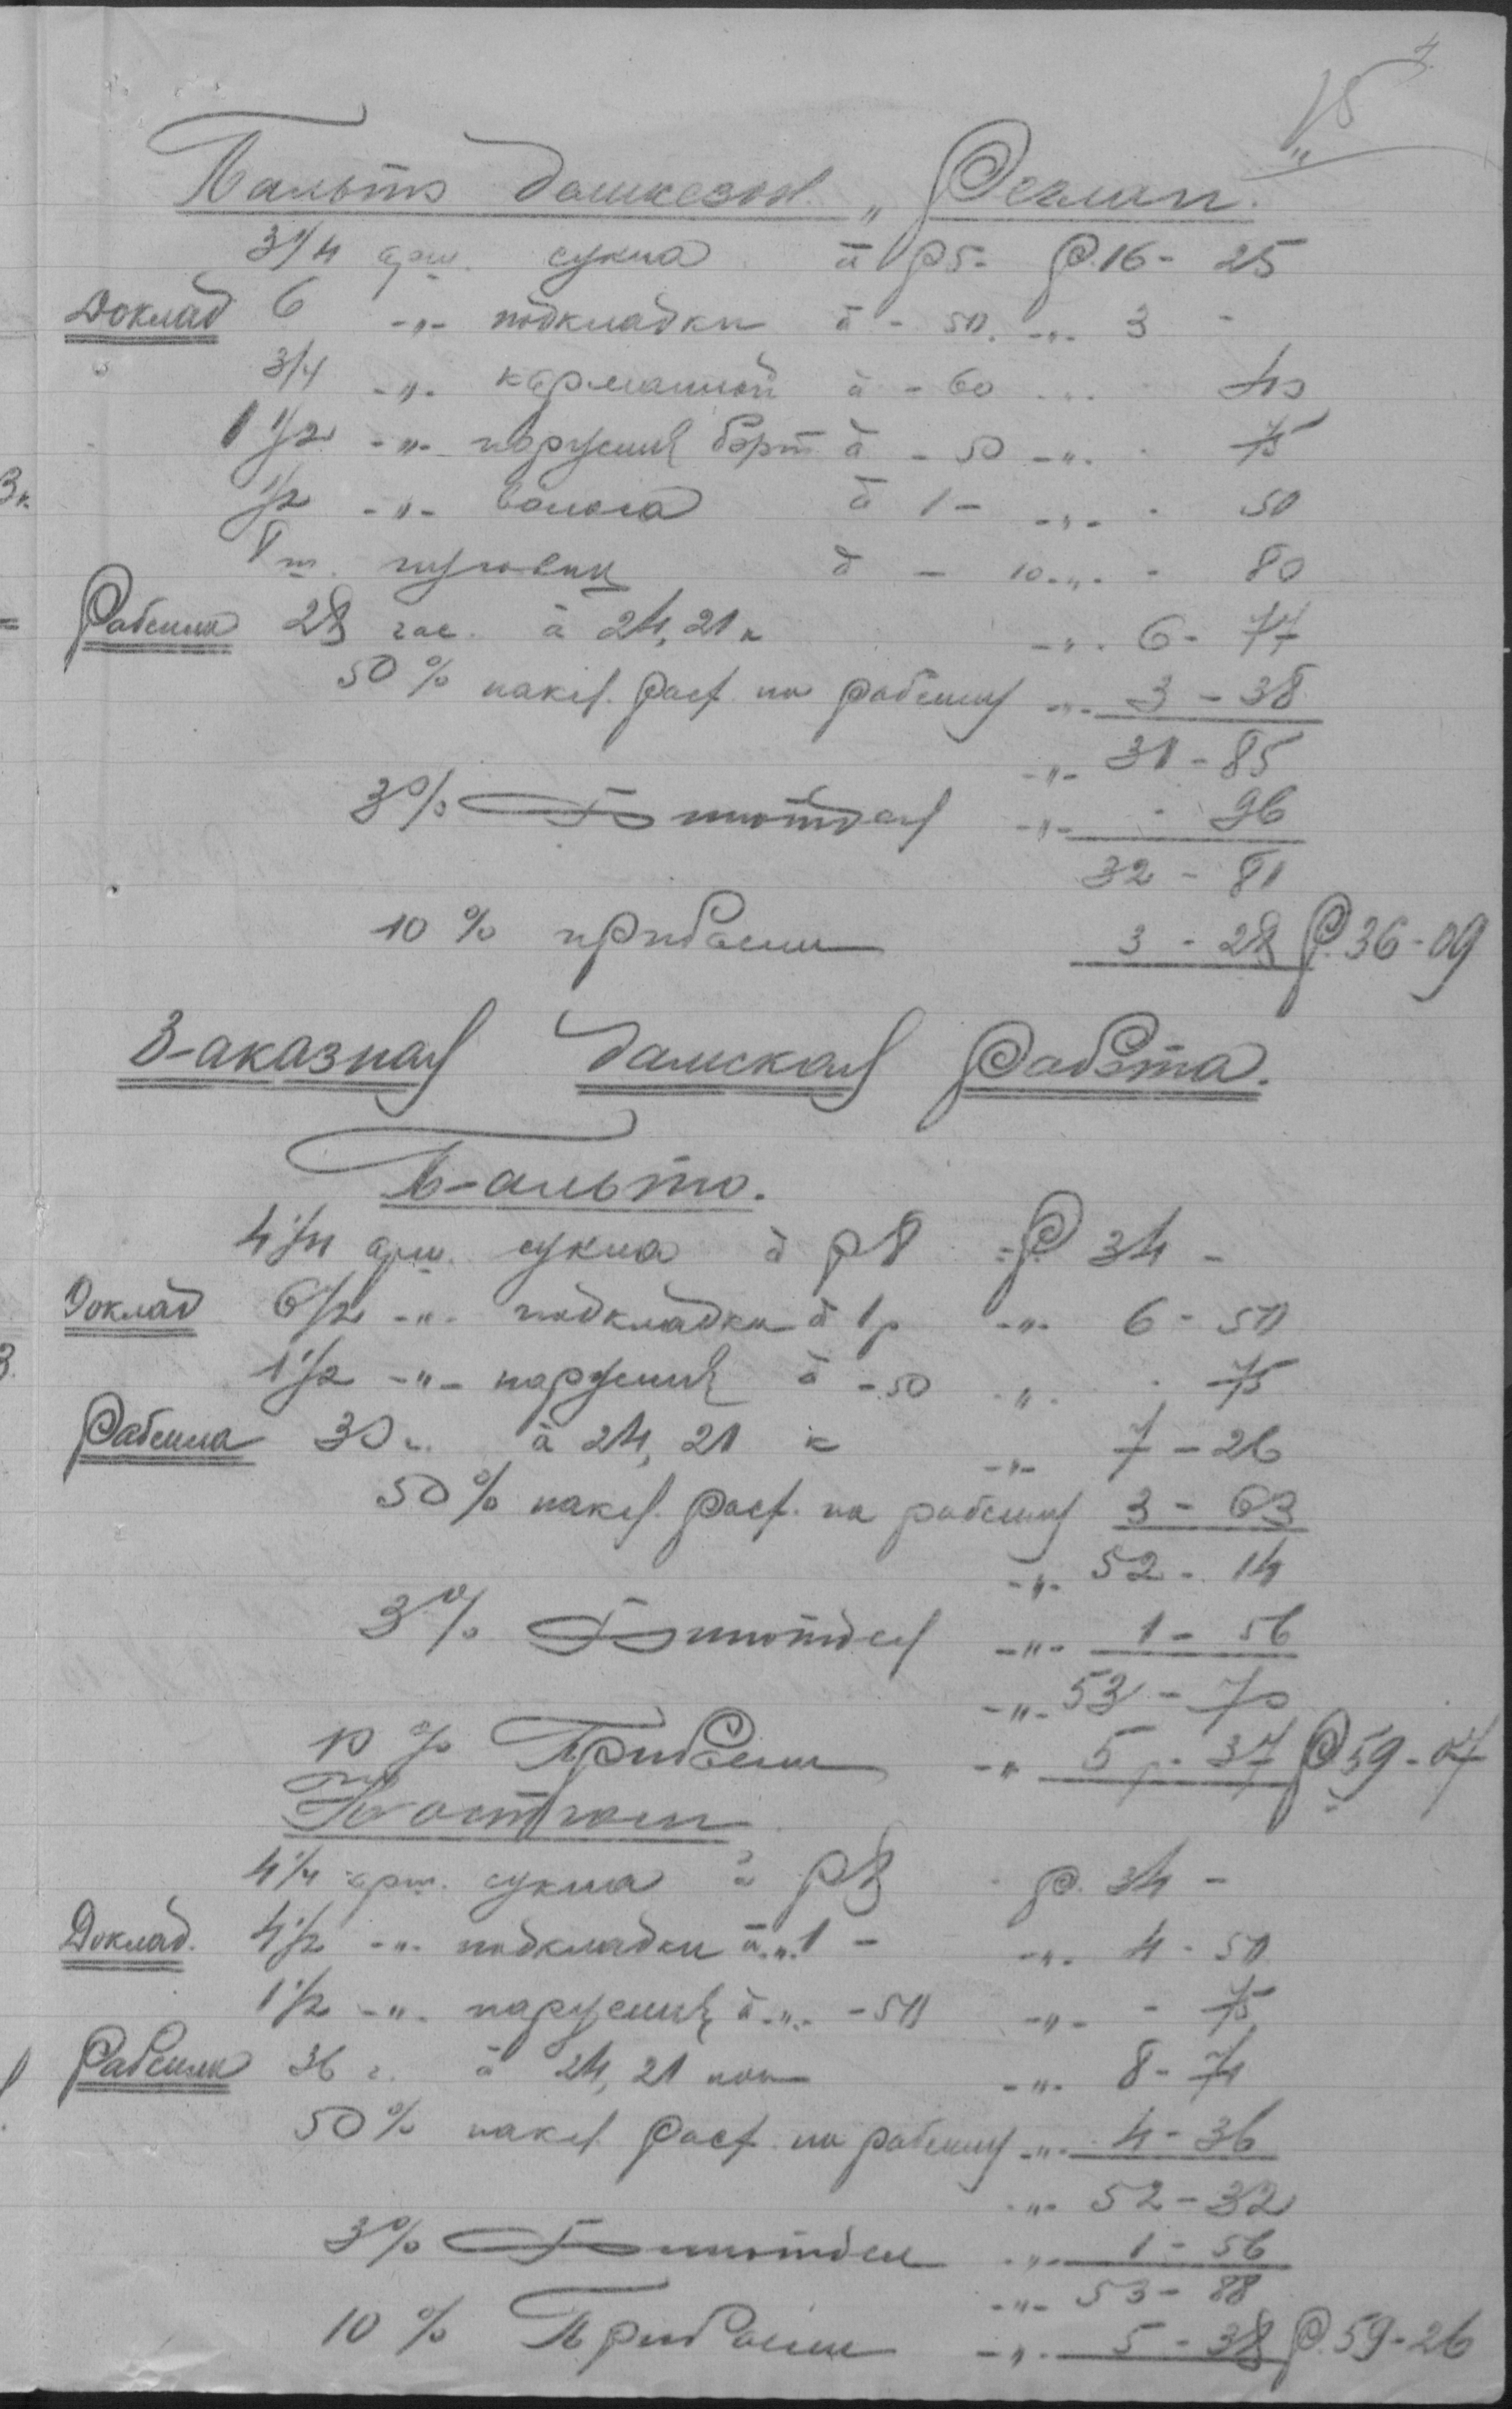 4.
15
Пальто демисезон. „Реглан.
3 1/4 арш. сукна à р 5- Р. 16 - 25
Доклад 6 -"- подкладки à - 50. -"- 3 -
3/4 -"- карманной à - 60 -"- - 45
1 1/2 -"- парусины борт à - 50 -"- - 75
1/2 -"- волоса à 1 - -"- - 50
8 ш. пуговиц à - 10 -"- - 80
Рабсила 28 час. à 24,21 к -"- 6 - 77
50 % накл. расх. на рабсилу -"- 3 - 38
-"- 31 - 85
3 % -"- - 96
32 - 81
10 % прибыли 3 - 28 Р. 36 - 09
Заказная дамская работа.
Пальто.
4 1/4 арш. сукна à р 8 - Р. 34 -
Доклад 6 1/2 -"- подкладки à 1 р -"- 6 - 50
1 1/2 -"- парусины à - 50 -"- - 75
Рабсила 30 ч. à 24,21 к -"- 7 - 26
50 % накл. расх. на рабсилу 3 - 63
-"- 52 - 14
3 % -"- 1 - 56
-"- 53 - 70
10 % Прибыли -"- 5 - 37 Р. 59 - 07
Костюм
4 1/4 арш. сукна à р 8 - р. 34 -
Доклад. 4 1/2 -"- подкладки à -"- 1 - -"- 4 - 50
1 1/2 -"- парусины à -"- - 50 -"- - 75
Рабсила 36 ч. à 24,21 коп -"- 8 - 71
50 % накл. расх. на рабсилу -"- 4 - 36
-"- 52 - 32
3 % -"- 1 - 56
-"- 53 - 88
10 % Прибыли -"- 5 - 38 Р. 59 - 26